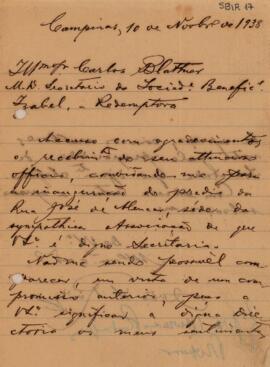 SBIR 17
Campinas, 10 de Novbro de 1938
Illmo Snr Carlos Blattner
M. D. Secretario da Socied. Benefic.
Isabel, a Redemptora
Accuso com agradecimentos
o recebimto do seu attencioso
officio, convidando-me para
a inauguração do predio da
Rua José de Alencar, séde da
sympathica Associação de que
V.S. é digno Secretario.
Não me sendo possivel com-
parecer, em vista de um com-
promisso anterior, peço a
V.S. significar a digna Dire-
ctoria os meus sentimentos